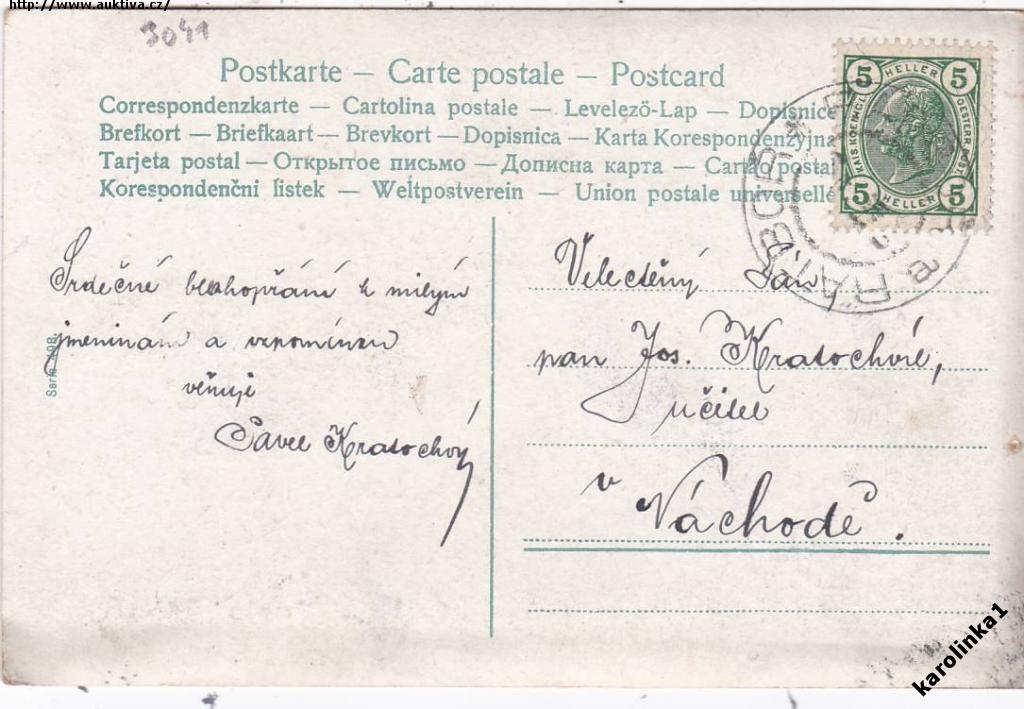 http://www.auktiva.cz/
3041
Postkarte – Carte postale – Postcard
Correspondenzkarte – Cartolina postale – Levelező-Lap – Dopisnice
Brefkort – Briefkaart – Brevkort – Dopisnica – Karta Korespondenzyjna
Tarjeta postal – Открытое письмо – Дописна карта – Cartão postal
Korespondenčni listek – Weltpostverein – Union postale universelle
5 HELLER 5
KAIS.KOENIGL. OESTERR. POST
5 HELLER 5
Srdečné blahopřání k milým
jmeninám a vzpomínku
věnuje
Pavel Kratochvíl
Serie 198.
Velectěný Pán
pan Jos. Kratochvíl,
učitel
v
Náchodě.
karolinka1